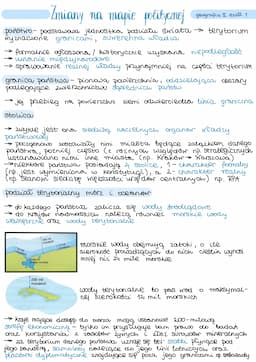 Zmiany na mapie politycznej
geografia 2, dział 1
państwo - podstawowa jednostka podziału świata → terytorium
wyznaczone granicami, suwerenna władza
→ formalnie ogłoszona / historycznie uzyskana niepodległość
→ uznanie międzynarodowe
→ sprawowanie realnej władzy przynajmniej na części terytorium
granica państwa - pionowa płaszczyzna, oddzielająca obszary
podlegające zwierzchnictwu sąsiednich państw
→ jej przebieg na powierzchni ziemi odzwierciedla linia graniczna
stolica
→ zwykle jest ona siedzibą naczelnych organów władzy
państwowej
→ początkowo stanowiły nim miasta będące zalążkiem danego
państwa, później często (z różnych względów np. strategicznych)
ustanawiano nimi inne miasta (np. Kraków → Warszawa)
→ niektóre państwa posiadają 2 stolice, 1 - charakter formalny
(np. jest wymieniona w konstytucji), a 2 - charakter realny
(np. stanowi siedzibę większości władz centralnych) np. RPA
podział terytorialny mórz i oceanów
→ do każdego państwa zalicza się wody śródlądowe
→ do krajów nadmorskich należą również morskie wody
wewnętrzne oraz wody terytorialne
morskie wody obejmują zatoki, o ile
szerokość prowadzących do nich cieśnin wynosi
mniej niż 24 mile morskie
wody terytorialne to pas wód o maksymal-
nej szerokości 12 mil morskich
→ kraje mające dostęp do morza mogą ustanowić 200-milową
strefę ekonomiczną - tylko im przysługuje tam prawo do badań
oraz korzystania z zasobów żywych i złóż surowców mineralnych
→ za terytorium danego państwa uznaje się też statki płynące pod
jego banderą, samoloty należące do jego linii lotniczych oraz
placówki dyplomatyczne znajdujące się poza jego granicami